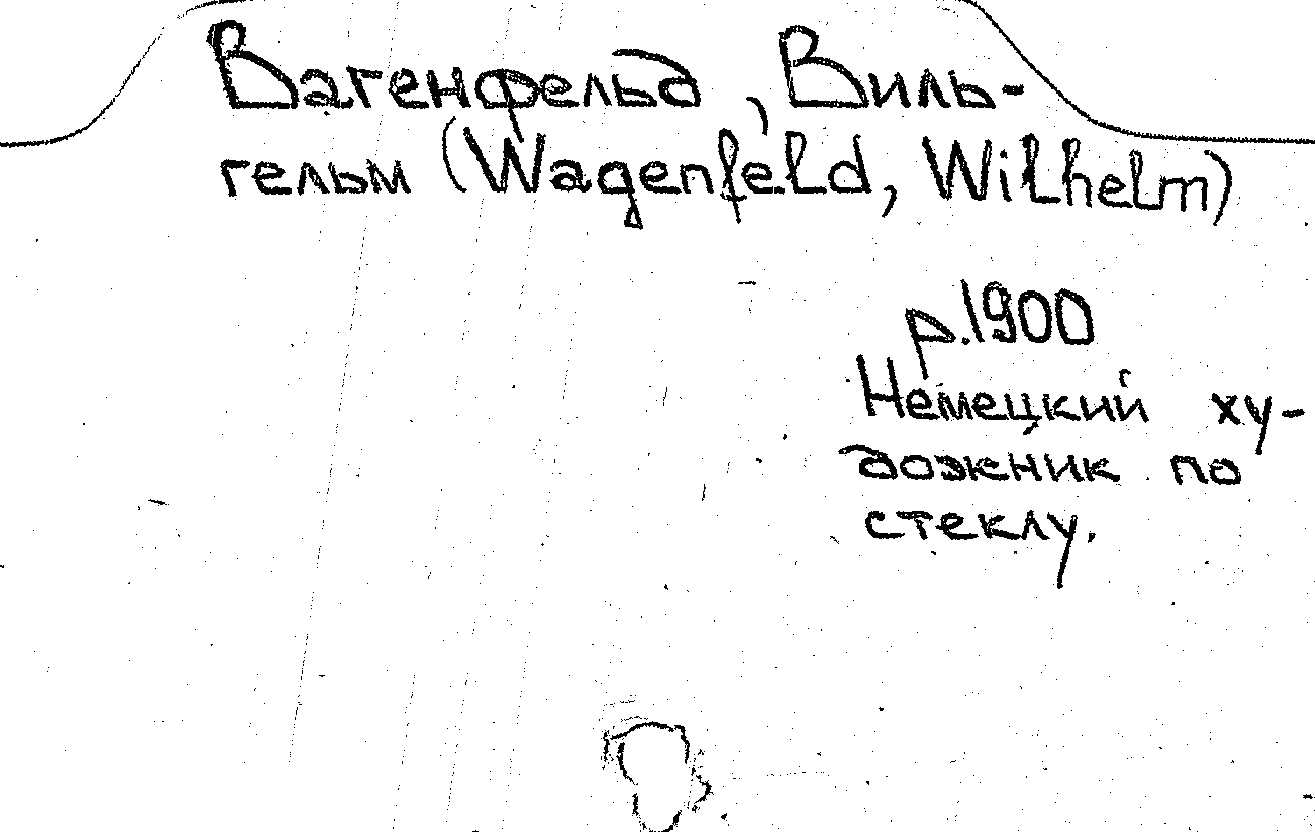 Вагенфельд, Виль-
гельм (Wagenfeld, Wilhelm)
р.1900
Немецкий ху-
дожник по
стеклу.